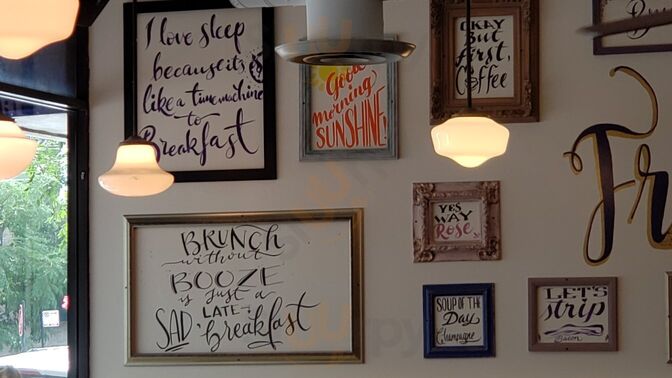 I love sleep
because it's
like a time machine
to
Breakfast
Good
morning,
SUNSHINE!
OKAY
But
first,
Coffee
BRUNCH
without
BOOZE
is just a
LATE
SAD breakfast
YES
WAY
Rosé
SOUP OF THE
Day
Champagne
LET'S
strip
Bacon